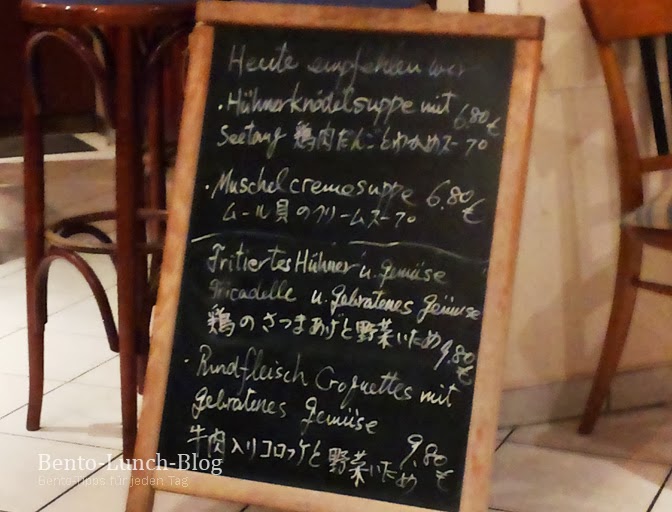 Heute empfehlen wir
· Hühnerknödelsuppe mit 6.80 €
Seetang 鶏肉だんごとわかめスープ
· Muschelcremesuppe 6.80 €
ムール貝のクリームスープ
Fritiertes Hühner u. Gemüse
Fricadelle u. gebratenes Gemüse
鶏のさつまあげと野菜いため 9.80 €
· Rundfleisch Croquettes mit
gebratenes Gemüse
牛肉入りコロッケと野菜いため 9.80 €
Bento-Lunch-Blog
Bento-Tipps für jeden Tag